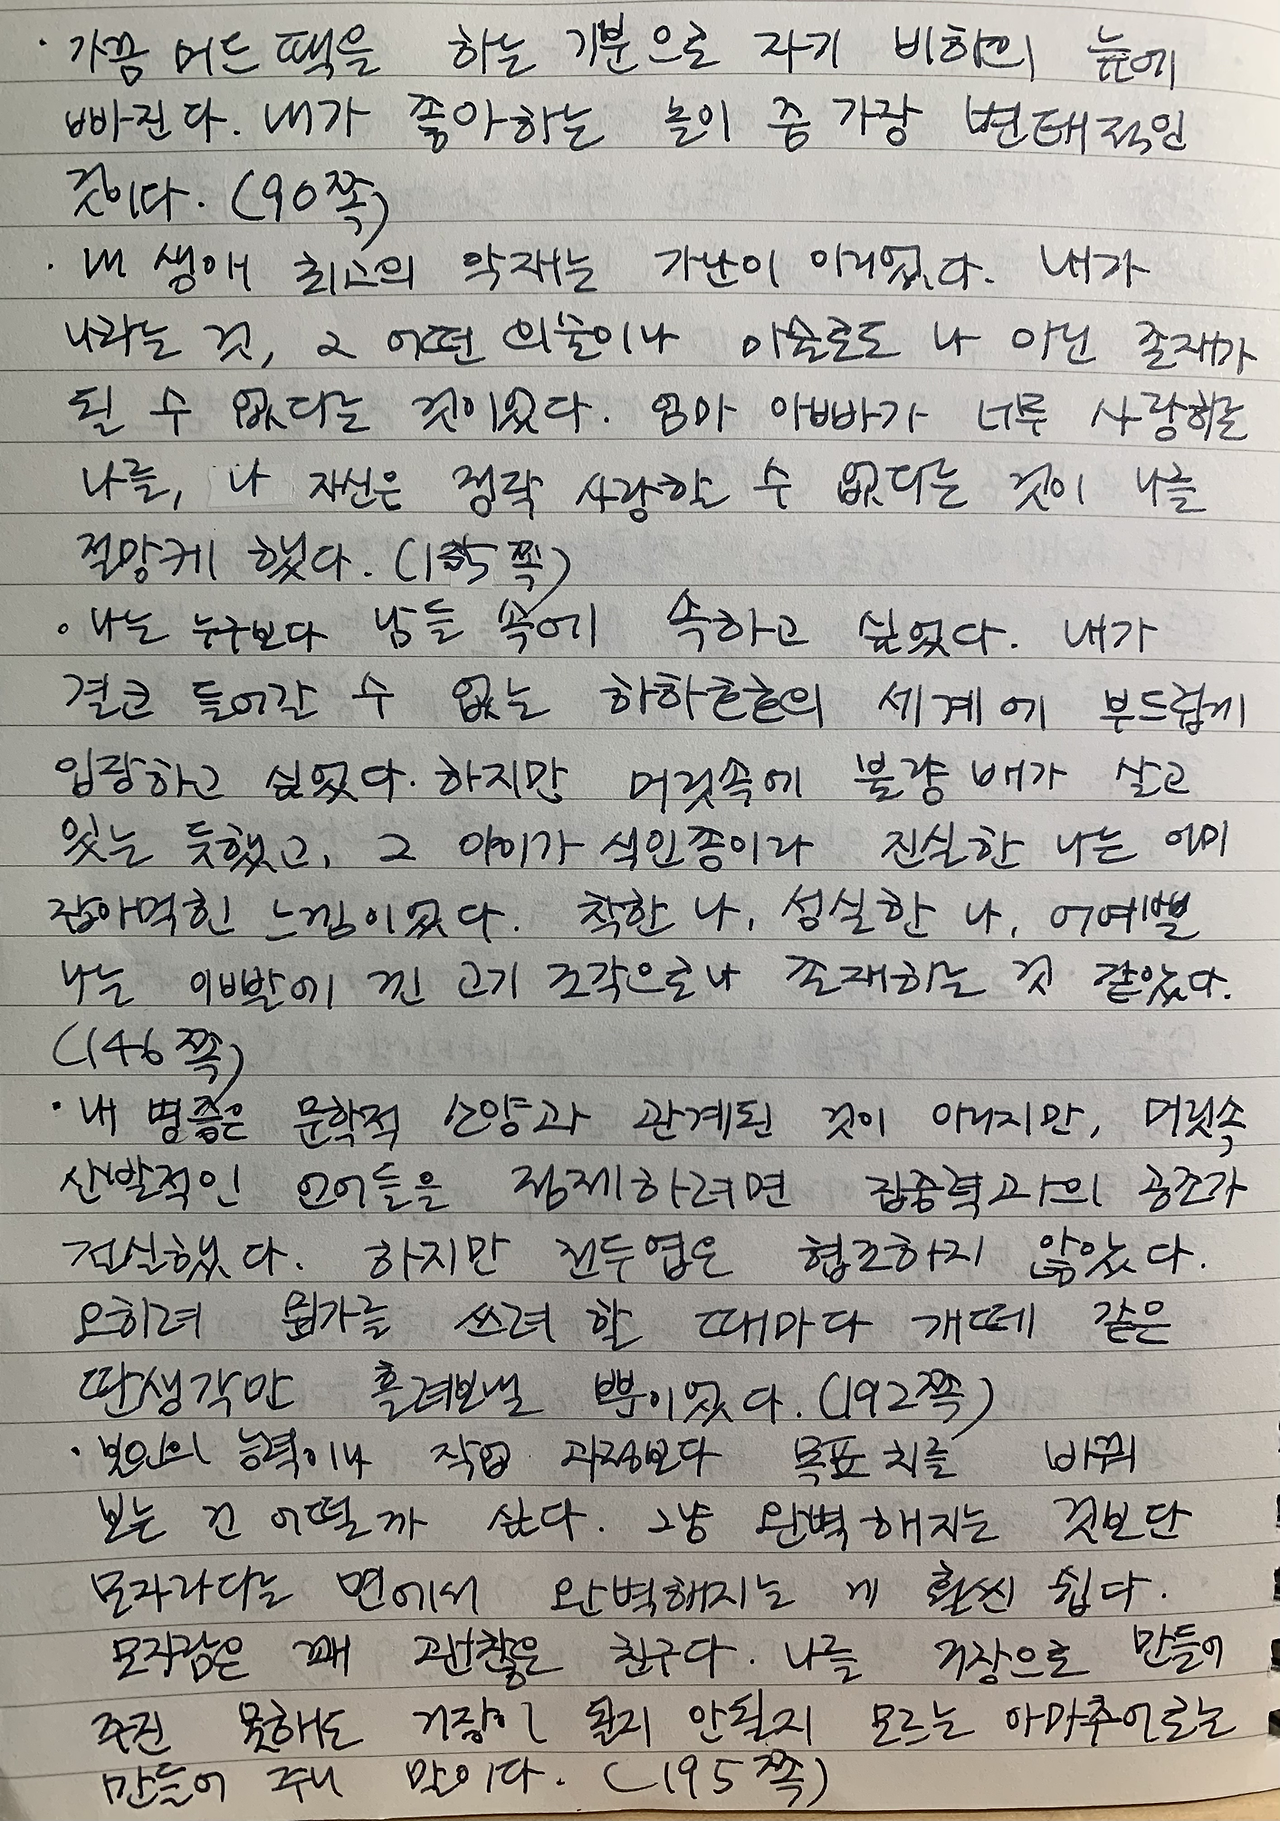 · 가끔 머드팩을 하는 기분으로 자기 비하의 늪에
빠진다. 내가 좋아하는 놀이 중 가장 변태적인
것이다. (90쪽)
· 내 생애 최고의 악재는 가난이 아니었다. 내가
나라는 것, 그 어떤 의술이나 이술로도 나 아닌 존재가
될 수 없다는 것이었다. 엄마 아빠가 너무 사랑하는
나를, 나 자신은 정작 사랑할 수 없다는 것이 나를
절망케 했다. (쪽)
· 나는 누구보다 남들 속에 속하고 싶었다. 내가
결코 들어갈 수 없는 하하호호의 세계에 부드럽게
입장하고 싶었다. 하지만 머릿속에 불량배가 살고
있는 듯했고, 그 아이가 식인종이라 진실한 나는 이미
잡아먹힌 느낌이었다. 착한 나, 성실한 나, 어여쁠
나는 이빨에 낀 고기 조각으로나 존재하는 것 같았다.
(146쪽)
· 내 병증은 문학적 소양과 관계된 것이 아니지만, 머릿속
산발적인 언어들을 정제하려면 집중력과의 공조가
절실했다. 하지만 전두엽은 협조하지 않았다.
오히려 뭔가를 쓰려 할 때마다 개떼 같은
딴생각만 흘려보낼 뿐이었다. (192쪽)
· 본인의 능력이나 작업 과정보다 목표치를 바꿔
보는 건 어떨까 싶다. 그냥 완벽해지는 것보단
모자라다는 면에서 완벽해지는 게 훨씬 쉽다.
모자람은 꽤 괜찮은 친구다. 나를 거장으로 만들어
주진 못해도 거장이 될지 안될지 모르는 아마추어로는
만들어 주니 말이다. (195쪽)